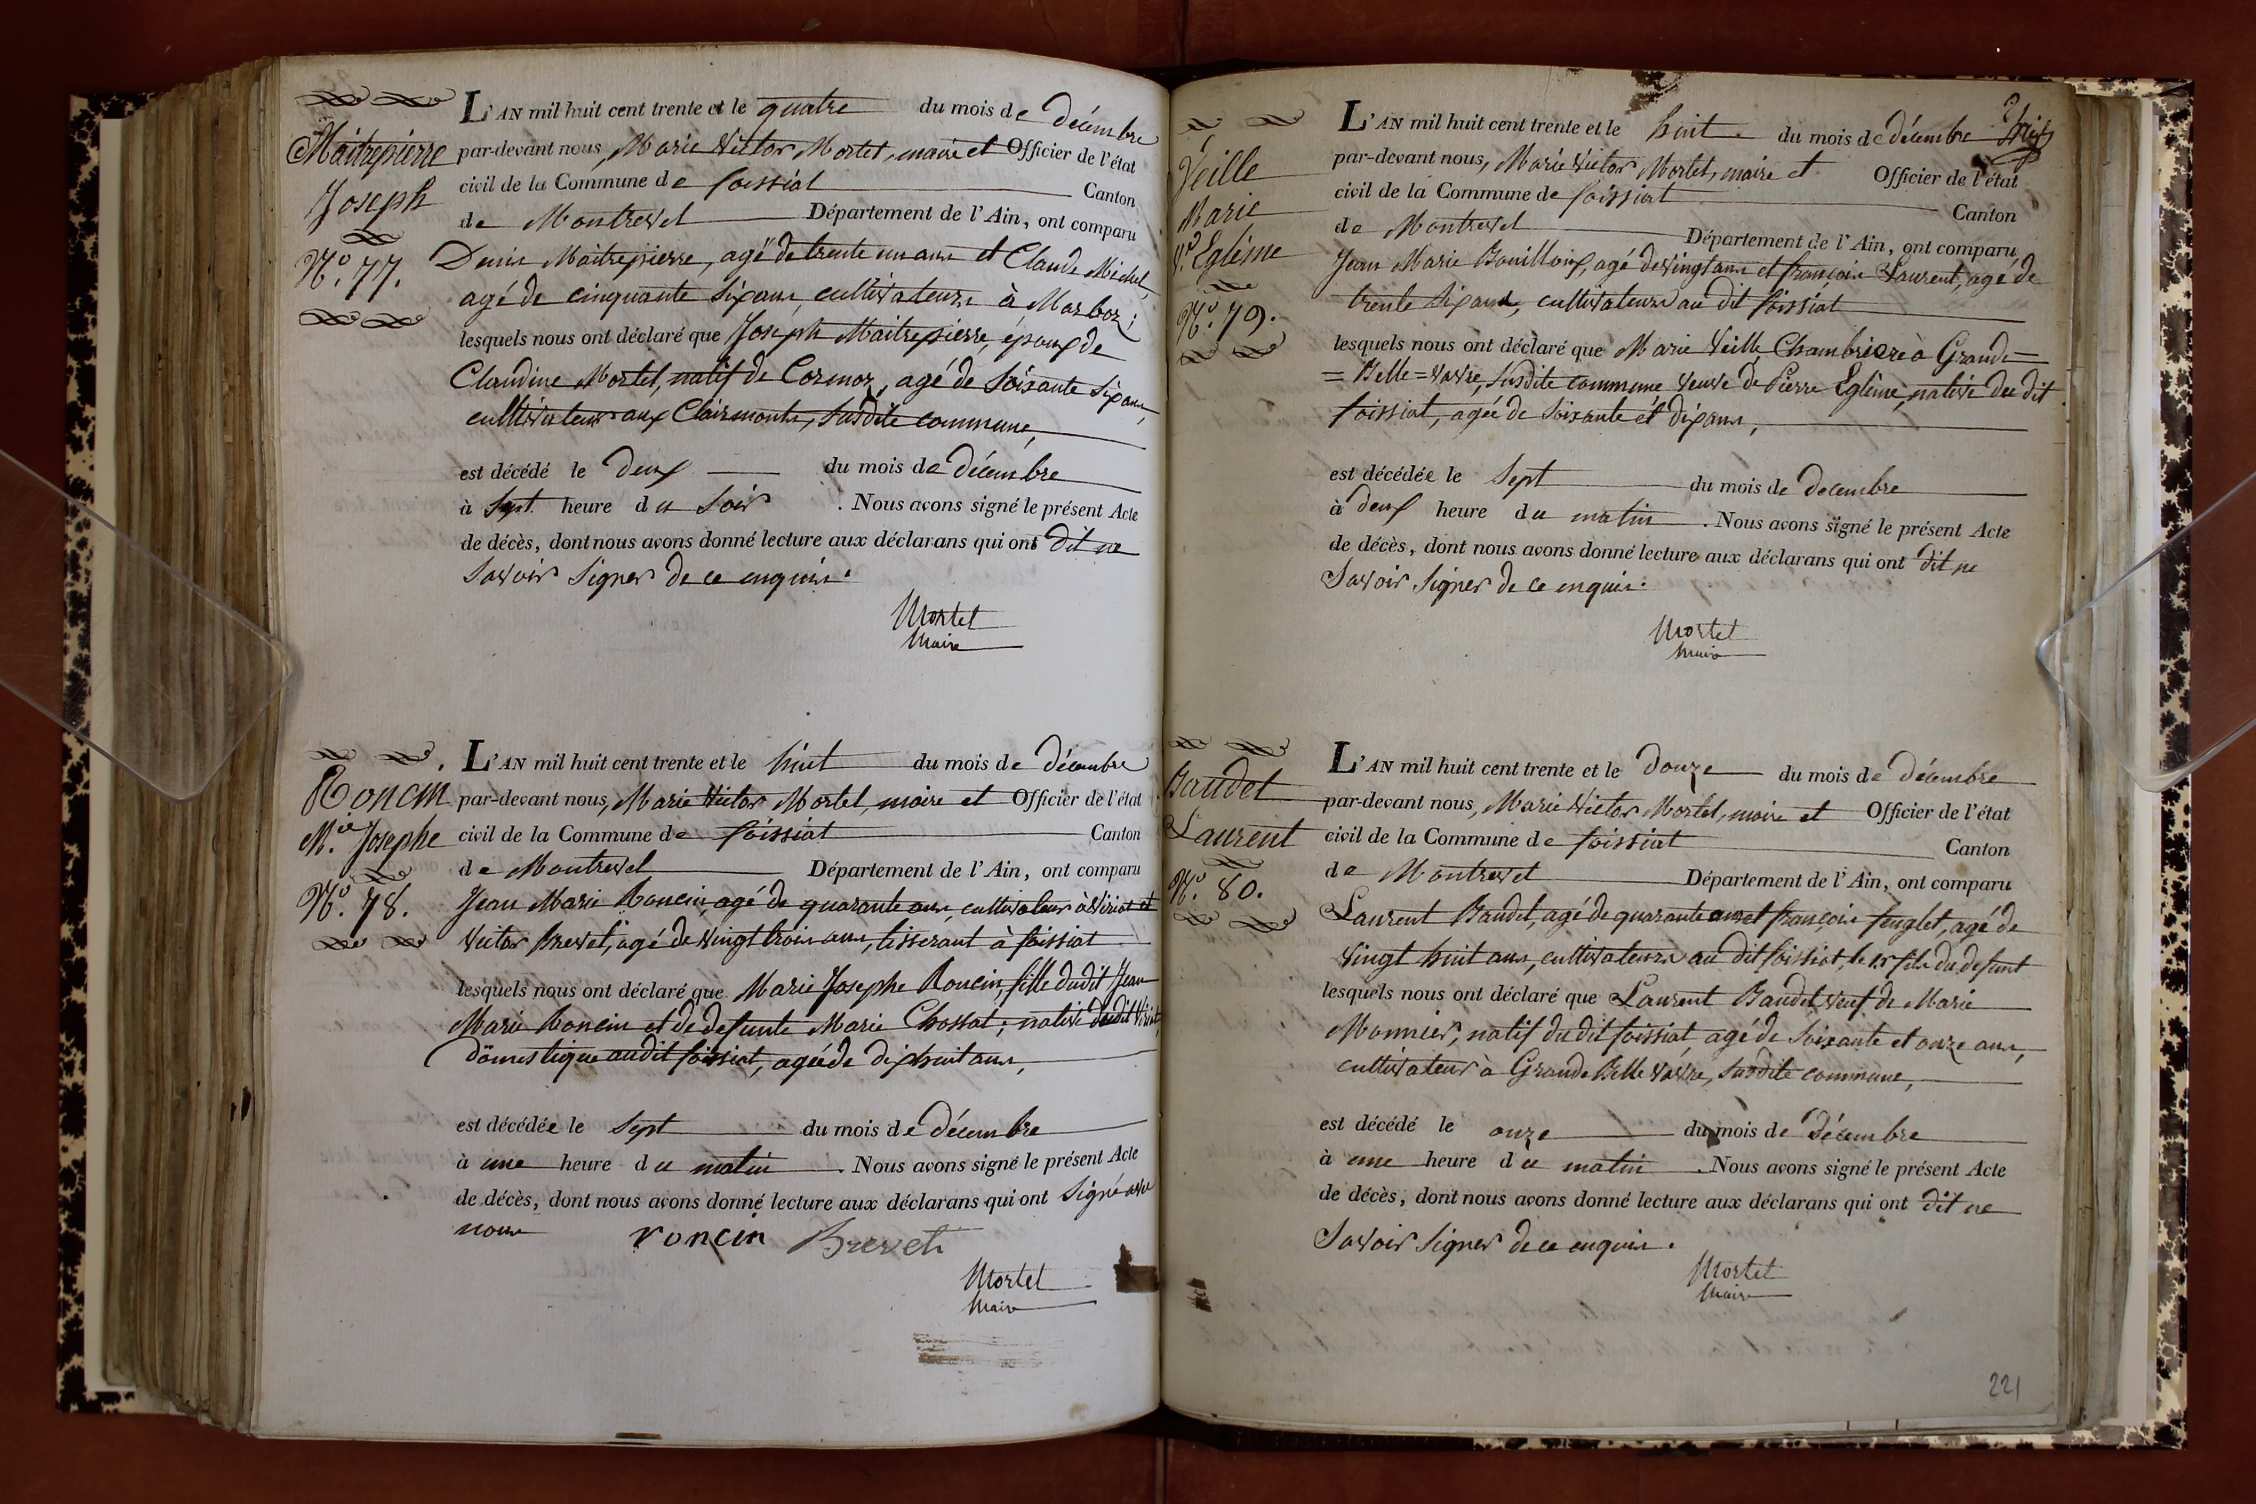 Maitrepierre
Joseph
N.º 77.
L'AN mil huit cent trente et le quatre du mois de décembre
par-devant nous, Marie Victor Mortel, maire et Officier de l'état
civil de la Commune de foissiat Canton
de Montrevel Département de l'Ain, ont comparu
Denis Maitrepierre, agé de trente un ans et Claude Michel,
agé de cinquante six ans, cultivateurs à Marboz;
lesquels nous ont déclaré que Joseph Maitrepierre, époux de
Claudine Mortel, natif de Cormoz, agé de soixante six ans,
cultivateur aux Clairmonts, susdite commune,
est décédé le deux du mois de décembre
à sept heure du soir . Nous avons signé le présent Acte
de décès, dont nous avons donné lecture aux déclarans qui ont dit ne
savoir signer de ce enquis.
Mortel
Maire
Roncin
M.ie Josephe
N.º 78.
L'AN mil huit cent trente et le huit du mois de décembre
par-devant nous, Marie Victor Mortel, maire et Officier de l'état
civil de la Commune de foissiat Canton
de Montrevel Département de l'Ain, ont comparu
Jean Marie Roncin, agé de quarante ans, cultivateur à Viriat et
Victor Brevet, agé de vingt trois ans, tisserant à foissiat
lesquels nous ont déclaré que Marie Josephe Roncin, fille dudit Jean
Marie Roncin et de defunte Marie Chossat; native dudit Viriat,
domestique audit foissiat, agée de dix huit ans,
est décédée le sept du mois de décembre
à une heure du matin . Nous avons signé le présent Acte
de décès, dont nous avons donné lecture aux déclarans qui ont signé avec
nous roncin Brevet
Mortel
Maire
Veille
Marie
V.e Eglème
N.º 79.
L'AN mil huit cent trente et le huit du mois de décembre
par-devant nous, Marie Victor Mortel, maire et Officier de l'état
civil de la Commune de foissiat Canton
de Montrevel Département de l'Ain, ont comparu
Jean Marie Bouilloux, agé de vingt ans et françois Laurent, agé de
trente six ans, cultivateurs au dit foissiat
lesquels nous ont déclaré que Marie Veille, Chambrière à Grande=
=Belle=vavre, susdite commune, veuve de Pierre Eglème, native du dit
foissiat, agée de soixante et dix ans,
est décédée le sept du mois de decembre
à deux heure du matin . Nous avons signé le présent Acte
de décès, dont nous avons donné lecture aux déclarans qui ont dit ne
savoir signer de ce enquis.
Mortel
Maire
Baudet
Laurent
N.º 80.
L'AN mil huit cent trente et le douze du mois de décembre
par-devant nous, Marie Victor Mortel, maire et Officier de l'état
civil de la Commune de foissiat Canton
de Montrevel Département de l'Ain, ont comparu
Laurent Baudet, agé de quarante ans et françois feuglet, agé de
vingt huit ans, cultivateurs au dit foissiat, le 1.r fils du defunt
lesquels nous ont déclaré que Laurent Baudet veuf de Marie
Monnier, natif du dit foissiat, agé de soixante et onze ans,
cultivateur à Grande Belle vavre, susdite commune,
est décédé le onze du mois de décembre
à une heure du matin . Nous avons signé le présent Acte
de décès, dont nous avons donné lecture aux déclarans qui ont dit ne
savoir signer de ce enquis.
Mortel
Maire
221